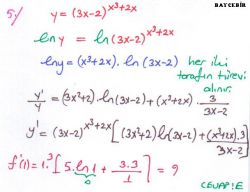 BAYCEBİR
5./ y = (3x-2)^{x³+2x}
ln y = ln (3x-2)^{x³+2x}
ln y = (x³+2x) . ln (3x-2) her iki
tarafın türevi
alınır.
y'/y = (3x²+2) . ln (3x-2) + (x³+2x) . 3/(3x-2)
y' = (3x-2)^{x³+2x} [ (3x²+2) ln (3x-2) + (x³+2x).3/(3x-2) ]
f'(1) = 1.³ [ 5. ln 1 + 3.3/1 ] = 9
0
CEVAP: E